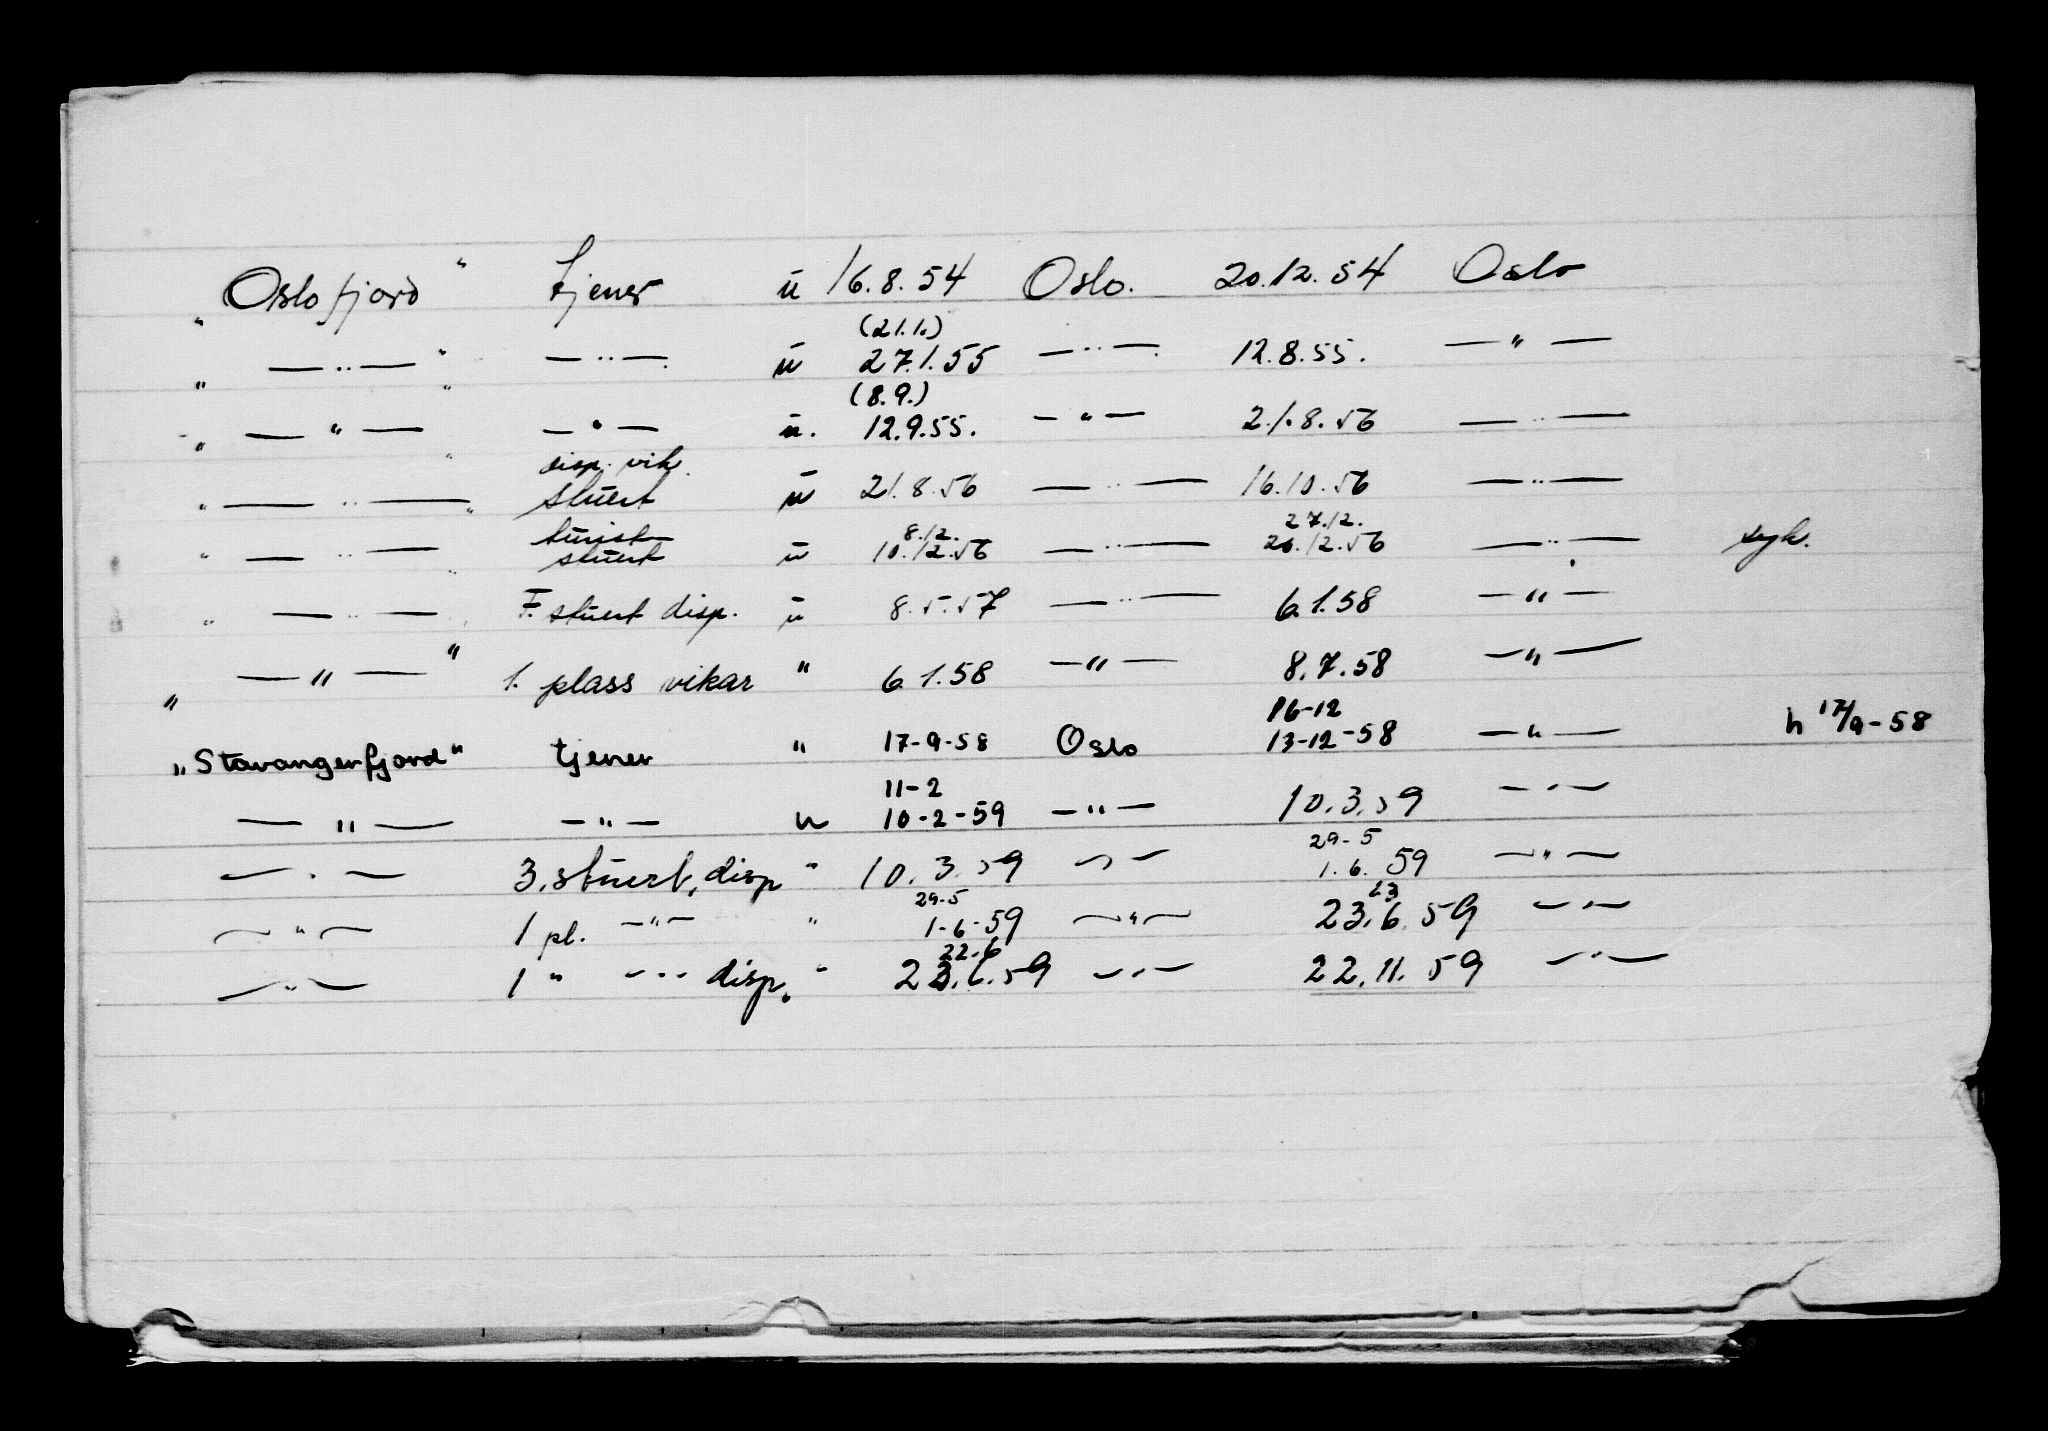 "Oslofjord" tjener u 16.8.54 Oslo. 20.12.54 Oslo
(21.1.)
" — " — " — " — u 27.1.55 — " — 12.8.55. — " —
(8.9.)
" — " — " — " — u. 12.9.55. — " — 21.8.56 — " —
disp. vik.
" — " — " stuert u 21.8.56 — " — 16.10.56 — " —
turist 8.12. 27.12.
" — " — " stuert u 10.12.56 — " — 26.12.56 — " — syk.
" — " — " F. stuert disp. u 8.5.57 — " — 6.1.58 — " —
" — " — " 1. plass vikar " 6.1.58 — " — 8.7.58 — " —
16-12
"Stavangerfjord" tjener " 17-9-58 Oslo 13-12-58 — " — h 17/9-58
11-2
— " — — " — u 10-2-59 — " — 10.3.59 — " —
29-5
— " — 3. stuert, disp " 10.3.59 — " — 1.6.59 — " —
29-5 23
— " — 1 pl. — " — " 1-6-59 — " — 23.6.59 — " —
22.6
— " — 1 " — " — disp. " 23.6.59 — " — 22.11.59 — " —